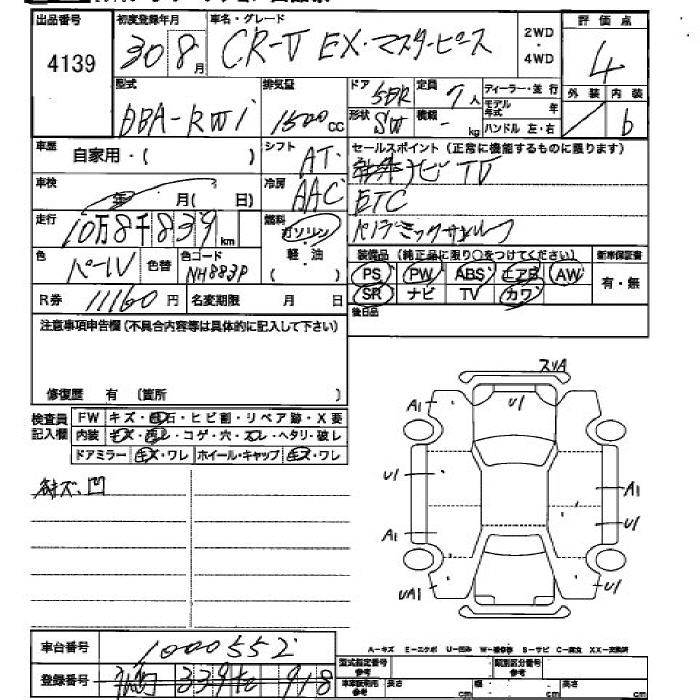 出品番号 初度登録年月 車名・グレード 2WD・4WD 評価点
4139 30 8月 CR-V EX・マスターピース 4
型式 排気量 ドア 5DR 定員 7人 ディーラー・並行 外装 内装
DBA-RW1 1500cc 形状 SW 積載 - kg モデル年式 年 ハンドル 左・右 b
車歴 自家用・( ) シフト AT セールスポイント (正常に機能するものに限ります)
ナビ TV
車検 年 月( 日) 冷房 AAC ETC
走行 10万8千839km 燃料 ガソリン・軽・油 ( )
色 パール 色替 色コード NH883P 装備品 (純正品に限り○をつけてください) 新車保証書
PS PW ABS エアB AW 有・無
R券 11160円 名変期限 月 日 SR ナビ TV カワ
後日品
注意事項申告欄 (不具合内容等は具体的に記入して下さい)
修復歴 有 〔箇所 〕
検査員記入欄 FW キズ・飛石・ヒビ割・リペア跡・X要
内装 キズ・汚レ・コゲ・穴・スレ・ヘタリ・破レ
ドアミラー キズ・ワレ ホイール・キャップ キズ・ワレ
スリA
A1 U1
凹 U1 A1
A1 U1
UA1 U1
車台番号 1000552
A-キズ E-エクボ U-凹み W-補修跡 S-サビ C-腐食 XX-交換済
登録番号 339 918
型式指定番号 参考 類別区分番号 参考
長さ cm 幅 cm 高さ cm